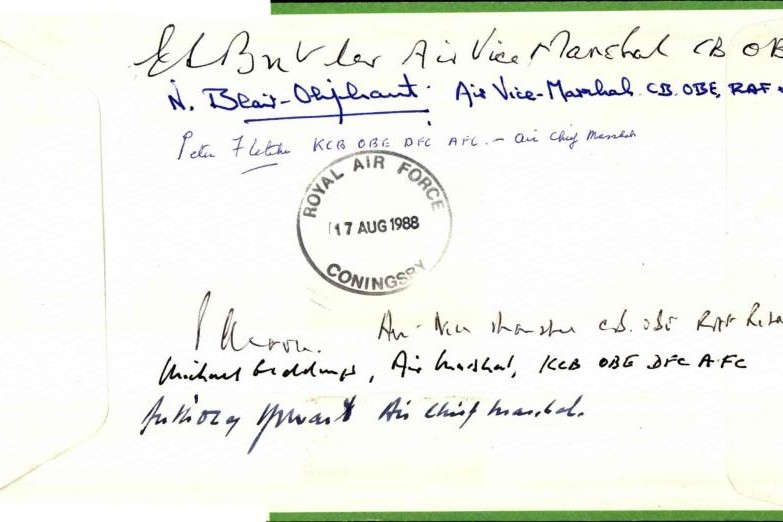 Butler Air Vice Marshal CB OB
N. Blair-Oliphant Air Vice-Marshal. CB. OBE, RAF
Peter Fletcher KCB OBE DFC AFC. - Air Chief Marshal
ROYAL AIR FORCE
17 AUG 1988
CONINGSBY
Air Vice Marshal CB. OBE RAF
Michael Giddings, Air Marshal, KCB OBE DFC AFC
Air Chief Marshal.